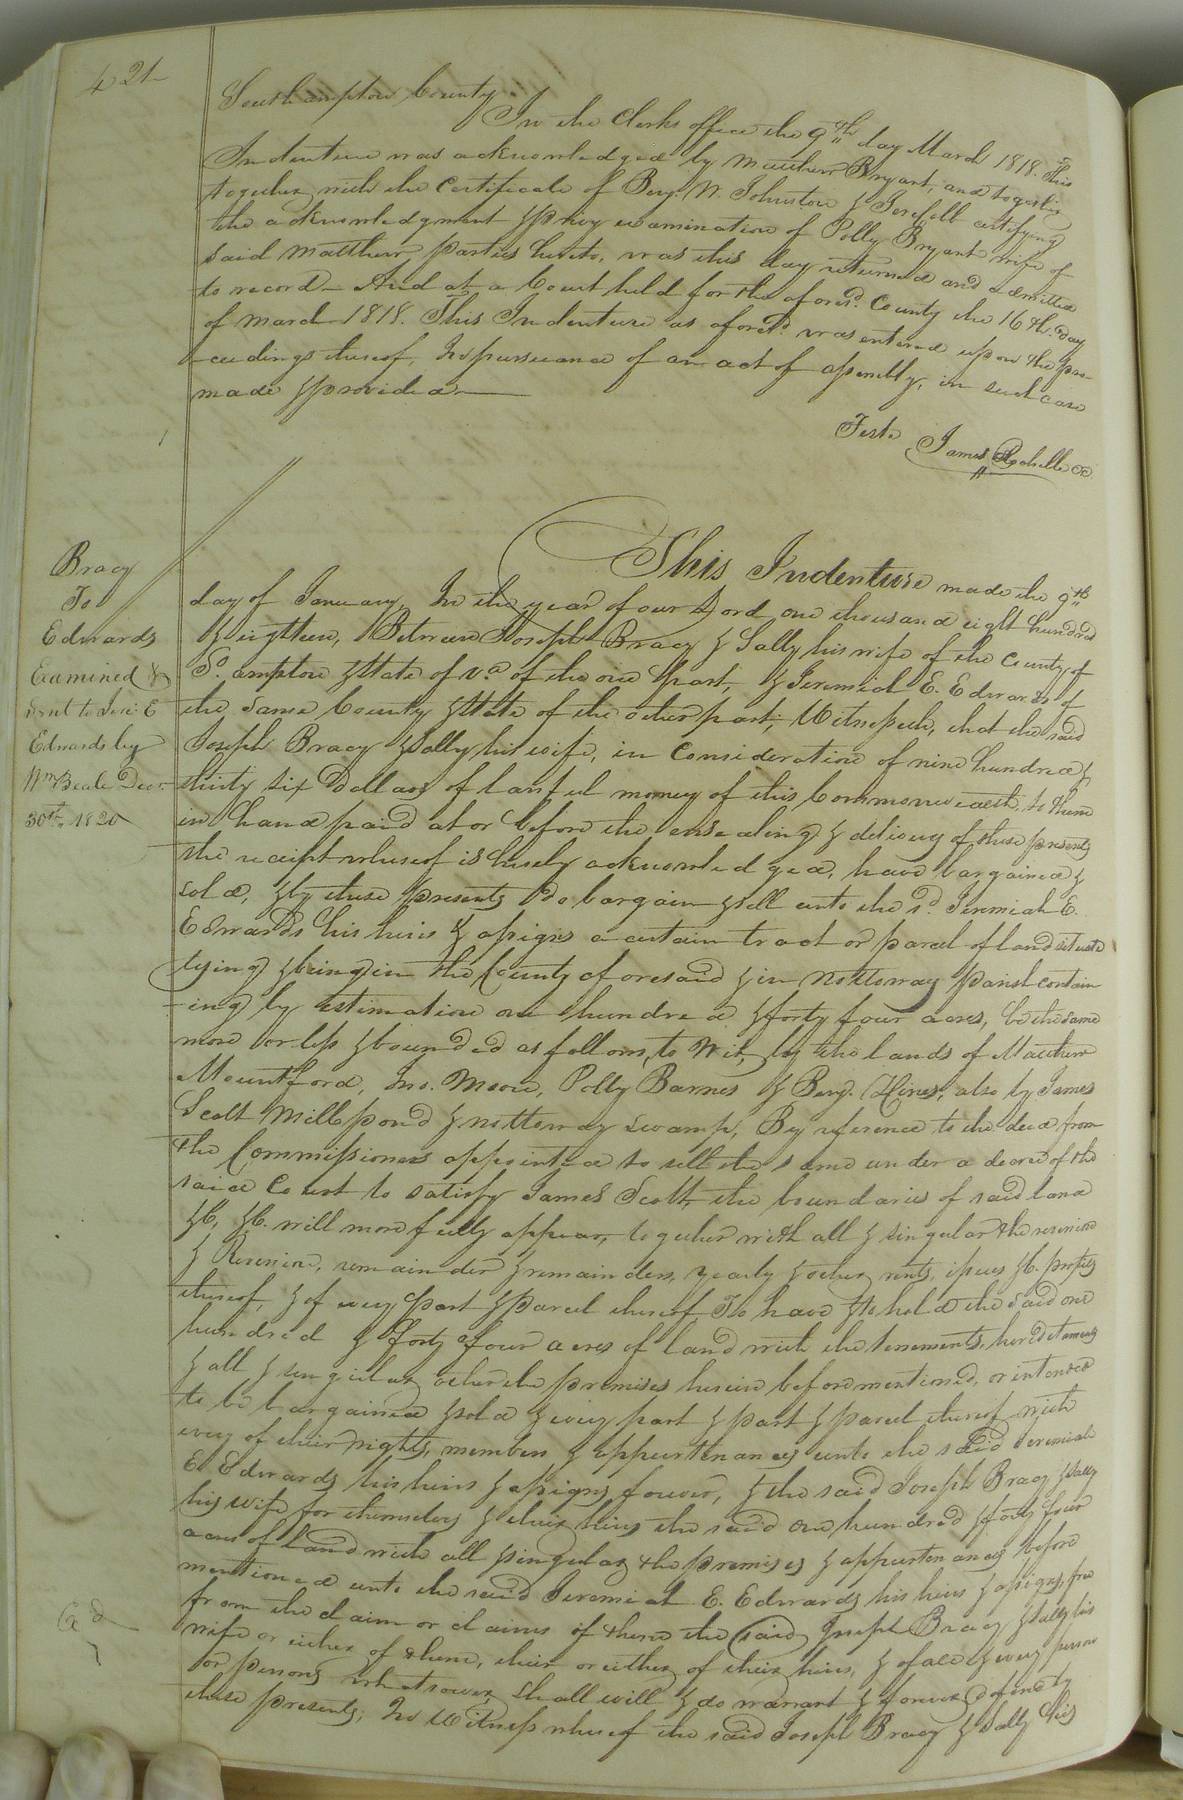 421
Southampton County
In the Clerks office the 9th day March 1818. This
Indenture was acknowledged by Matthew Bryant, and together
together with the Certificate of Benj. W. Johnston & certifying
the acknowledgment & privy examination of Polly Bryant wife of
said Matthew, parties hereto, was this day returned and admitted
to record – And at a Court held for the aforesd. County the 16th. day
of March 1818. This Indenture as aforesd. was entered upon the pro-
-ceedings thereof, In pursuance of an act of assembly, in such case
made & provided—
Teste James Rochelle CC.
Bracy
To
Edwards
Examined &
sent to Jere: E
Edwards by
Wm Beale Decr.
30th. 1820
This Indenture made the 9th
day of January, In the year of our Lord one thousand eight hundred
& eighteen, Between Joseph Bracy & Sally his wife of the County of
So. ampton & State of Va. of the one part, & Jeremiah E. Edwards of
the same County & State of the other part, Witnesseth, that the said
Joseph Bracy & Sally his wife, in consideration of nine hundred &
thirty six Dollars of lawful money of this Commonwealth to them
in hand paid at or before the ensealing & delivery of these presents
the receipt whereof is hereby acknowledged, have bargained &
sold, & by these presents do bargain & sell unto the sd. Jeremiah E.
Edwards his heirs & assigns a certain tract or parcel of land situate
lying & being in the County aforesaid & in Nottoway parish contain
-ing by estimation one hundred & forty four acres, be the same
more or less & bounded as follows, to Wit, by the lands of Matthew
Mountford, Jno. Moore, Polly Barnes & Benj. Hines, also by James
Scott Mill pond & nottoway swamp, By reference to the deed from
the Commissioners appointed to sell the same under a decree of the
said Court to satisfy James Scott, the boundaries of said land
&C, &C. will more fully appear, together with all & singular the reversion
& Reversions, remainder & remainders, yearly & other rents, issues &C. profits
thereof, & of every part & parcel thereof, To have & to hold the said one
hundred & forty four acres of land with the tenements, hereditaments
& all & singular other the premises herein before mentioned, or intended
to be bargained & sold & every part & part & parcel thereof with
every of their rights, members & appurtenances unto the said Jeremiah
E. Edwards his heirs & assigns forever, & the said Joseph Bracy & Sally
his wife for themselves & their heirs the said one hundred & forty four
acres of land with all & singular the premises & appurtenances before
mentioned unto the said Jeremiah E. Edwards his heirs & assigns, free
from the claim or claims of them the said Joseph Bracy & Sally his
wife or either of them, their or either of their heirs, & of all & every person
or persons whatsoever, shall will & do warrant & forever defend by
these presents, In Witness whereof the said Joseph Bracy & Sally his